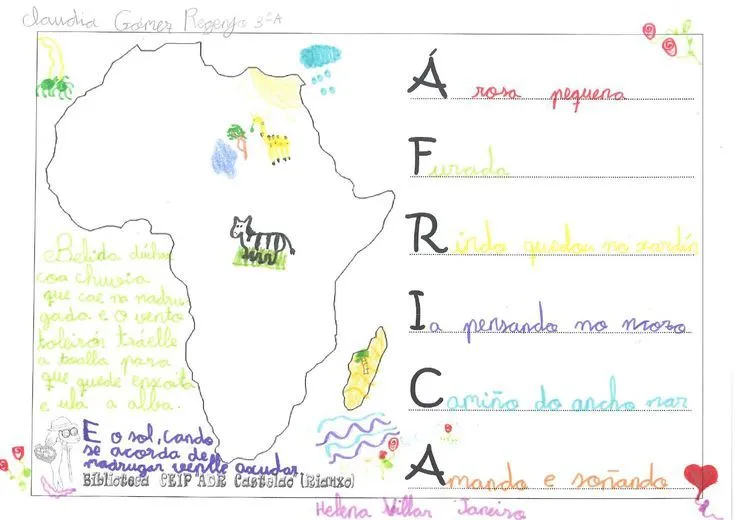 Claudia Gómez Regenjo 3ºA
Á rosa pequena
Furada
Rindo quedou no xardín
Ia pensando no mozo
Camiño do ancho mar
Amando e soñando
Belida
coa chuvia
que cae na madru
gada e o vento
toleirón tráelle
a toalla para
que quede enxoita
e ula a alba.
E o sol, cando
se acorda de
madrugar venlle axudar
Biblioteca CEIP ADR Castelao (Rianxo)
Helena Villar Janeiro